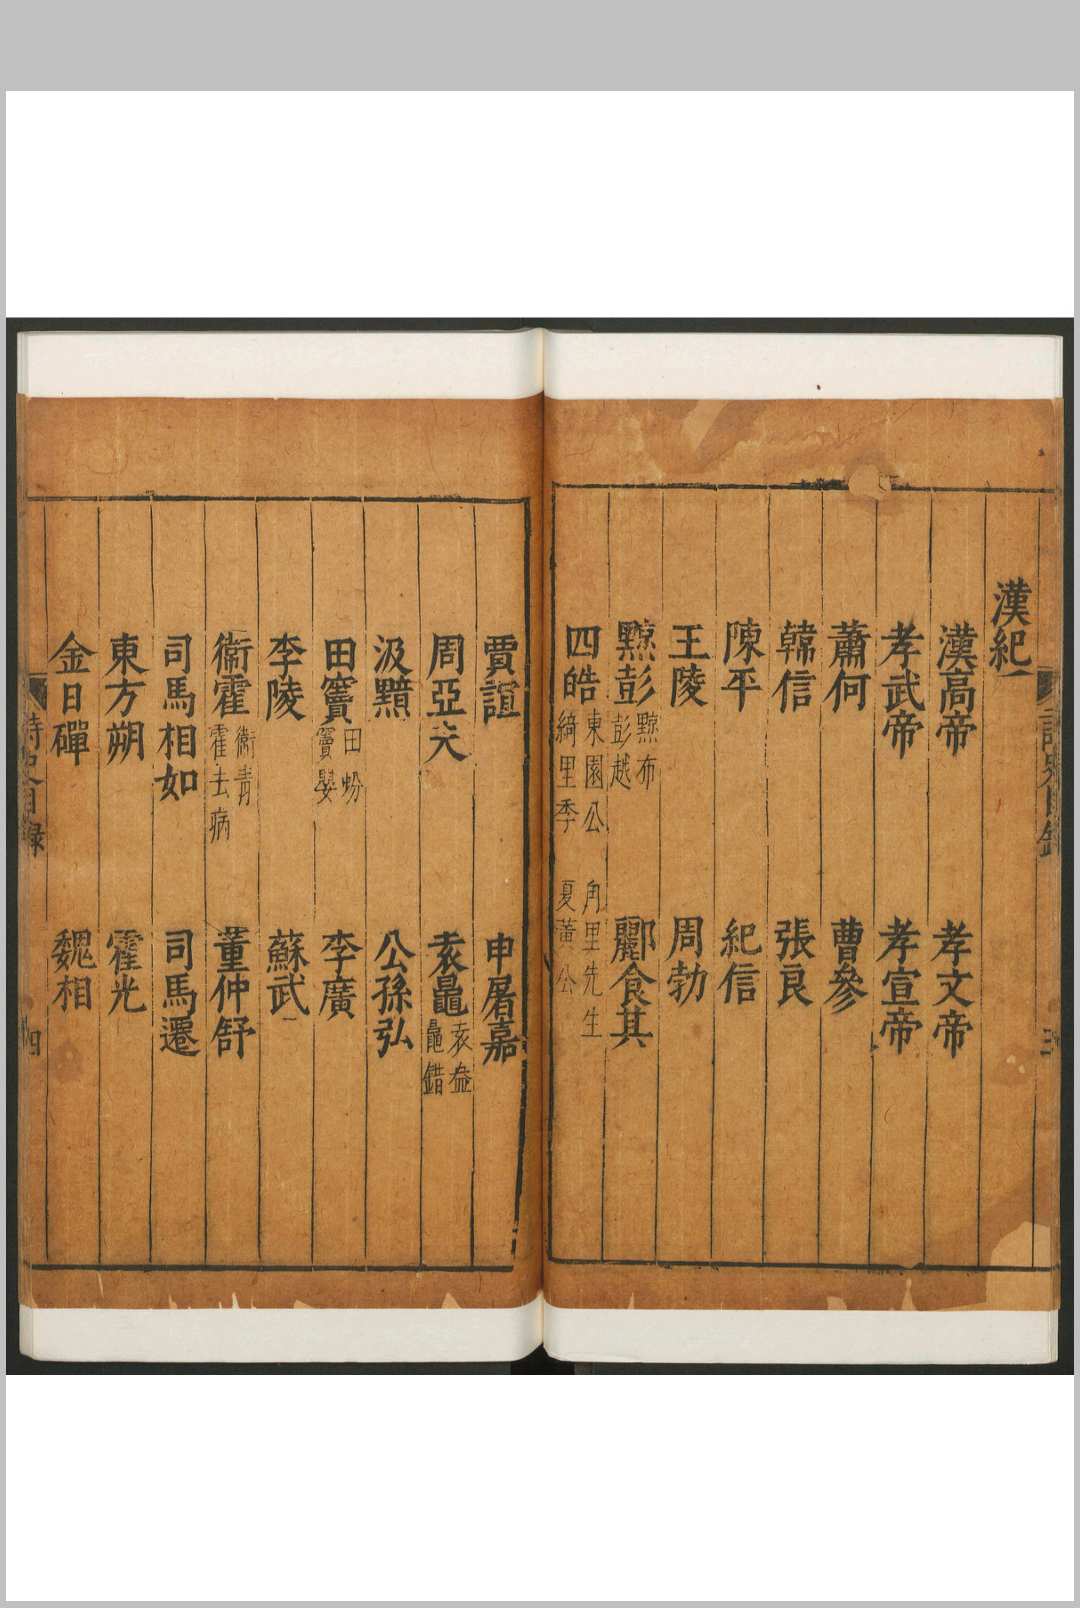 漢紀
漢高帝 孝文帝
孝武帝 孝宣帝
蕭何 曹參
韓信 張良
陳平 紀信
王陵 周勃
黥彭 黥布 彭越 酈食其
四皓 東園公 角里先生 綺里季 夏黃公
賈誼 申屠嘉
周亞夫 袁鼂 袁盎 鼂錯
汲黯 公孫弘
田竇 田蚡 竇嬰 李廣
李陵 蘇武
衞霍 衞青 霍去病 董仲舒
司馬相如 司馬遷
東方朔 霍光
金日磾 魏相
詩史目録 四